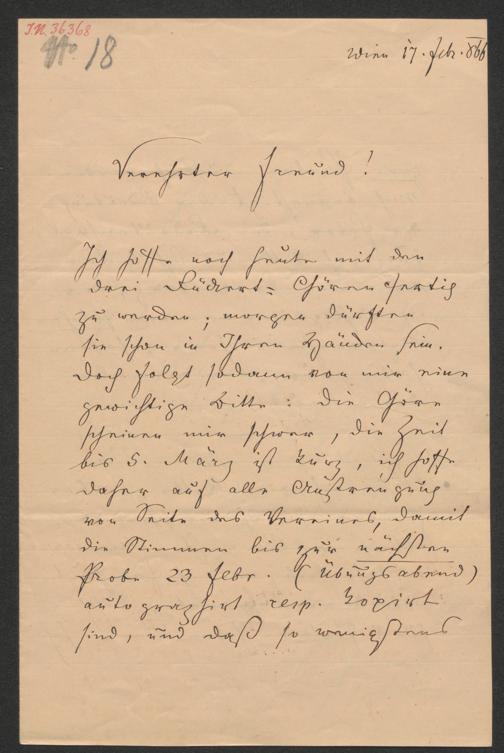 I.N. 36368
No 18
Wien 17. Febr. 866
Verehrter Freund!
Ich hoffe noch heute mit den
drei Rückert= Chören fertig
zu werden; morgen dürften
sie schon in Ihren Händen sein.
Doch folgt sodann von mir eine
gewichtige Bitte: Die Chöre
scheinen mir schwer, die Zeit
bis 5. März ist kurz, ich hoffe
daher auf alle Anstrengung
von Seite des Vereines, damit
die Stimmen bis zur nächsten
Probe 23 Febr. (Übungsabend)
autographirt resp. kopirt
sind, und daß so wenigstens